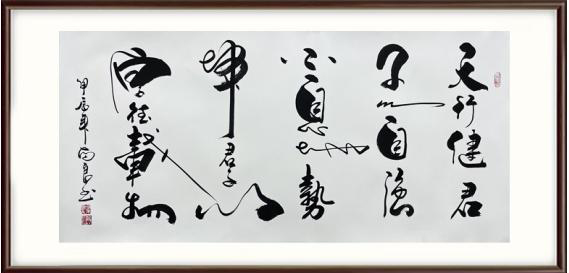 天行健君
子以自强
不息地勢
坤君子以
厚德載物
甲辰年